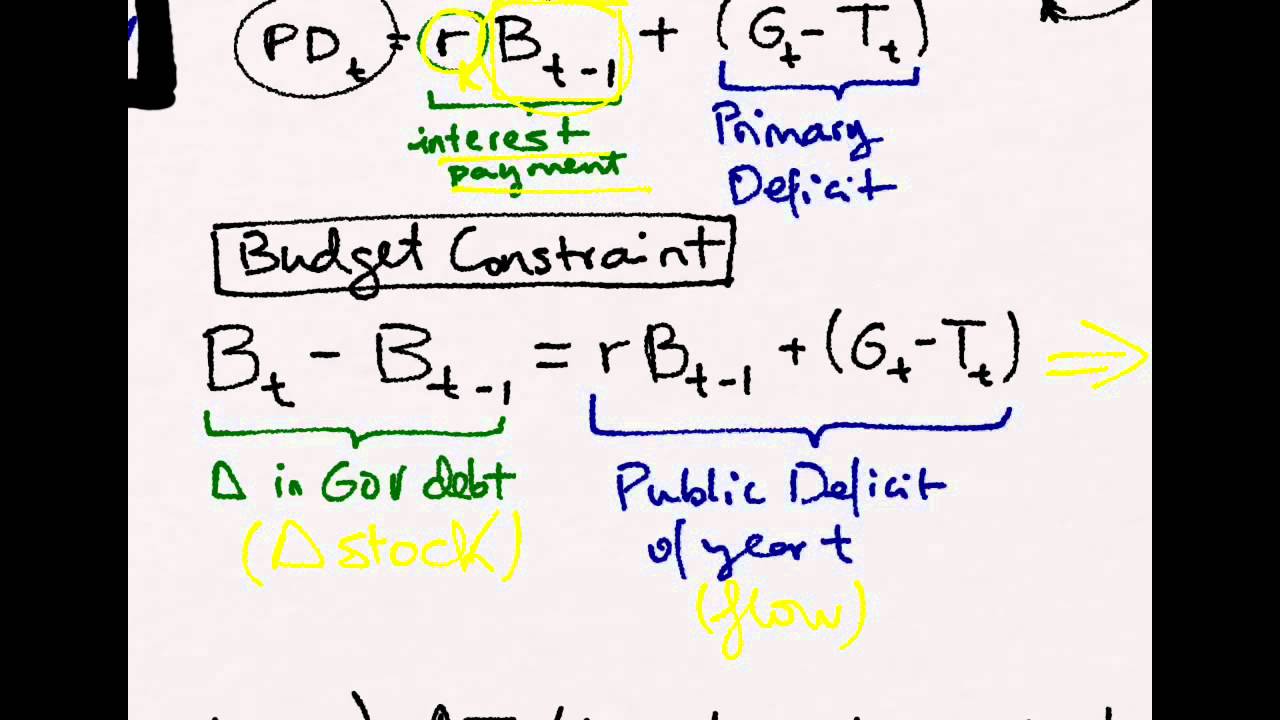 PD_t = r B_{t-1} + (G_t - T_t)
interest payment
Primary Deficit
Budget Constraint
B_t - B_{t-1} = r B_{t-1} + (G_t - T_t) ⇒
Δ in Gov debt
(Δ stock)
Public Deficit
of year t
(flow)